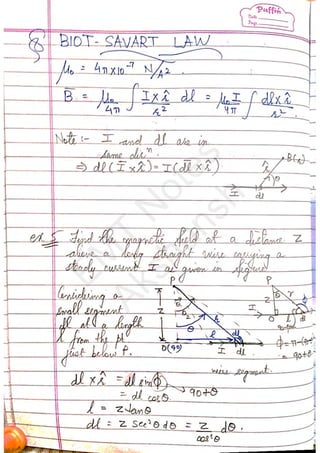 Puffin
Date
Page
§ BIOT-SAVART LAW
μ₀ = 4π×10⁻⁷ N/A²
B̄ = μ₀/4π ∫ Ī×r̂/r² dl = μ₀I/4π ∫ dl×r̂/r²
Note :- I and dl are in
same dirⁿ.
⇒ dl(Ī×r̂) = I(dl̄×r̂)
B(r)
r
θ
I
dl
ex. 5 Find the magnetic field at a distance z
above a long straight wire carrying a
steady current I as given in figure
Considering a
small segment
dl at a length
l from the pt
just below P.
P
z
θ₁
θ₂
θ
r
l
O(90)
I dl
P
I
z
r
O
l
wire segment.
dl×r̂ = dl sinΦ → 90+θ
= dl cosθ
l = z tanθ
dl = z sec²θ dθ = z/cos²θ dθ.